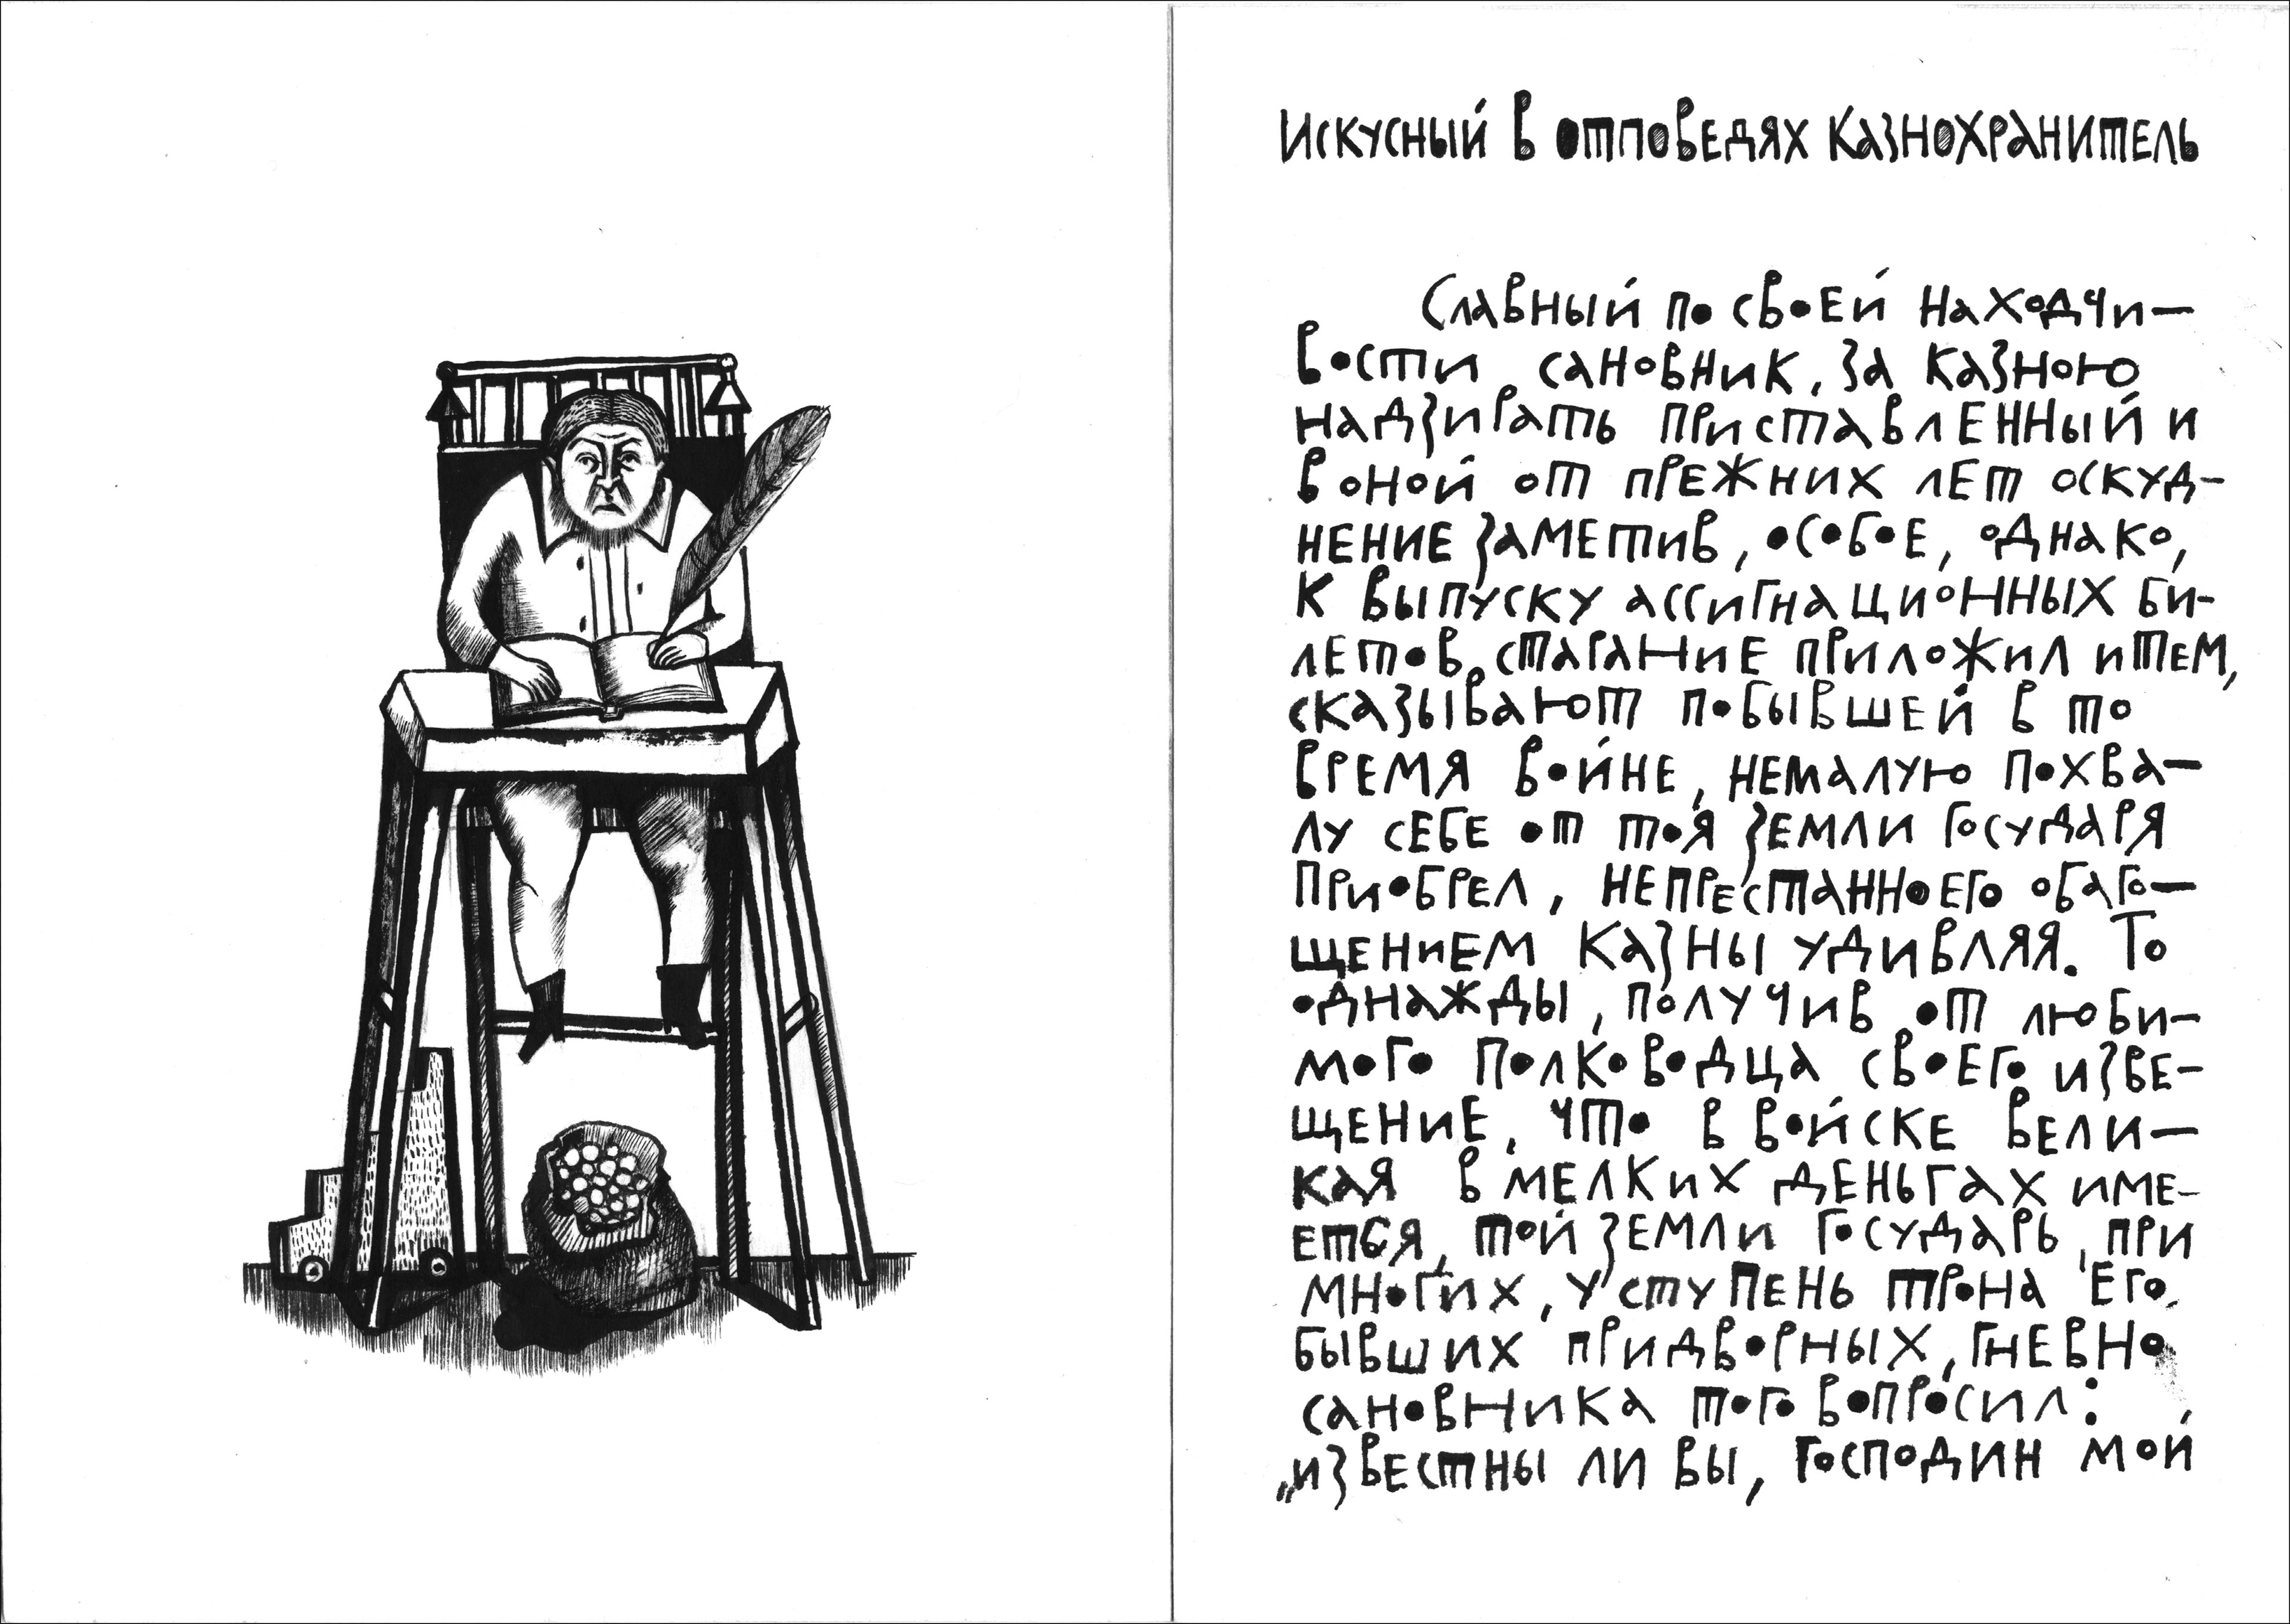 Искусный в отповедях казнохранитель
Славный по своей находчи-
вости сановник, за казною
надзирать приставленный и
в оной от прежних лет оскуд-
нение заметив, особое, однако,
к выпуску ассигнационных би-
летов старание приложил и тем,
сказывают побывшей в то
время войне, немалую похва-
лу себе от тоя земли государя
приобрел, непрестанно его обаго-
щением казны удивляя. То
однажды, получив от люби-
мого полководца своего изве-
щение, что в войске вели-
кая в мелких деньгах име-
ется, той земли государь, при
многих, у ступень трона его
бывших придворных, гневно
сановника того вопросил:
„известны ли вы, господин мой